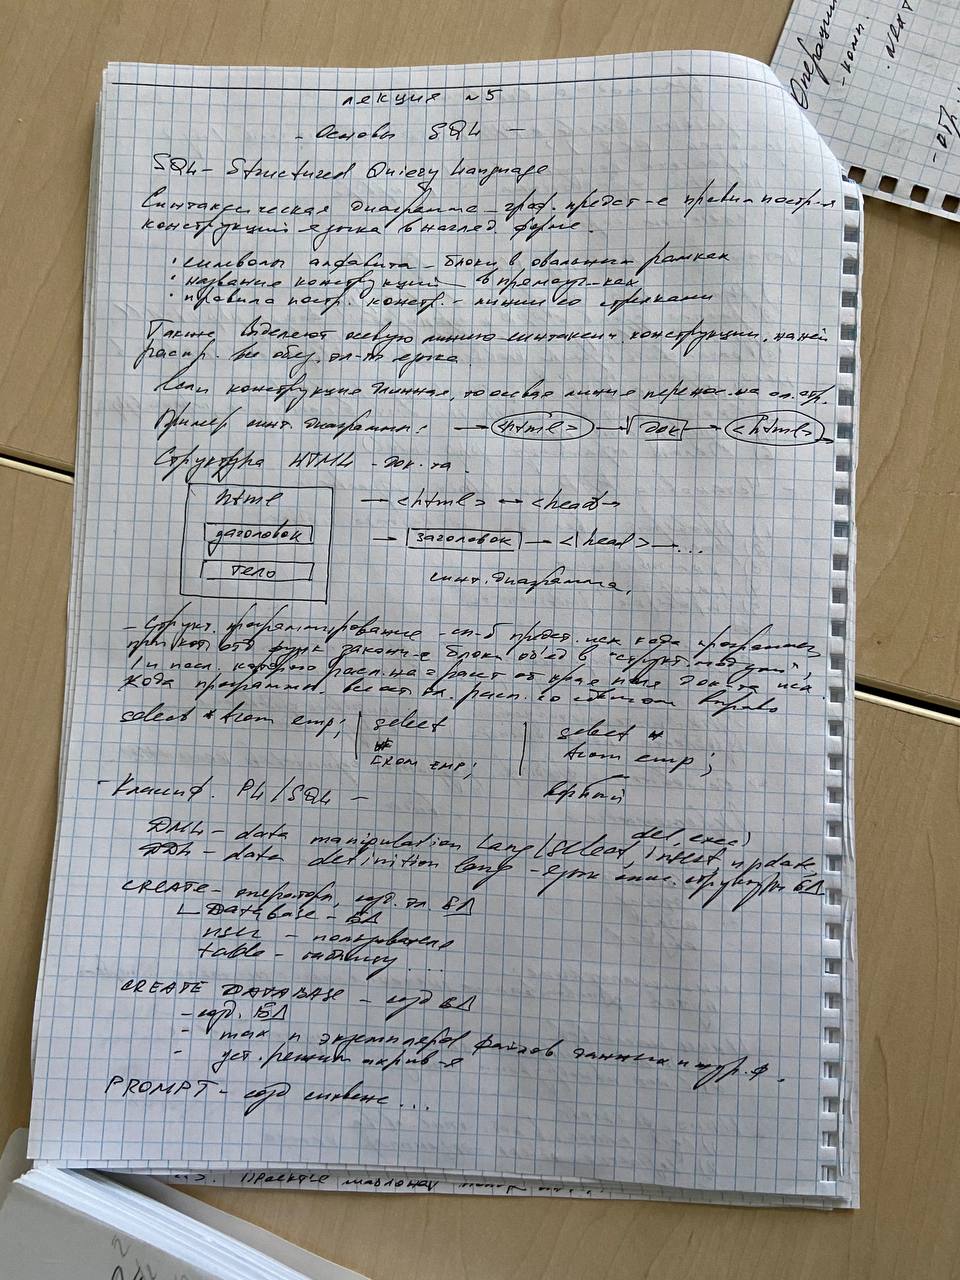 лекция №5
- Основы SQL -
SQL - Structured Quiery Language
Синтаксическая диаграмма - граф. предст-е правил постр-я
конструкций языка в нагляд. форме.
· символы алфавита - блоки в овальных рамках
· название конструкций - в прямоуг-ках
· правила постр. констр. - линии со стрелками
Также выделяют осевую линию синтаксич. конструкции, на ней
расп. все обяз. эл-ты языка.
Если конструкция длинная, то осевая линия перенос. на сл. стр.
Пример синт. диаграммы: → <html> → док → <html>
Структура HTML - док-та.
html
заголовок
тело
→ <html> → <head>
→ заголовок → <head> → ...
синт. диаграмма.
- Структ. программирование - сп-б предст. исх. кода программы,
при кот. отд. функ. законч-е блоки объед. в "структ. модули",
кода программы
select * from emp;
select
*
FROM EMP;
select *
from emp;
верный
- Классиф. PL/SQL -
DML - data manipulation lang (select, insert, update,
del, exec)
DDL - data definition lang - язык опис. структуры БД
CREATE - оператор, созд. эл. БД
Database - БД
user - пользователя
table - таблицу ...
CREATE DATABASE - созд БД
- созд. БД
- max n экземпляров файлов данных и жур. ф.
- уст. режим архив-я
PROMPT - созд ...
Операции
- комп.